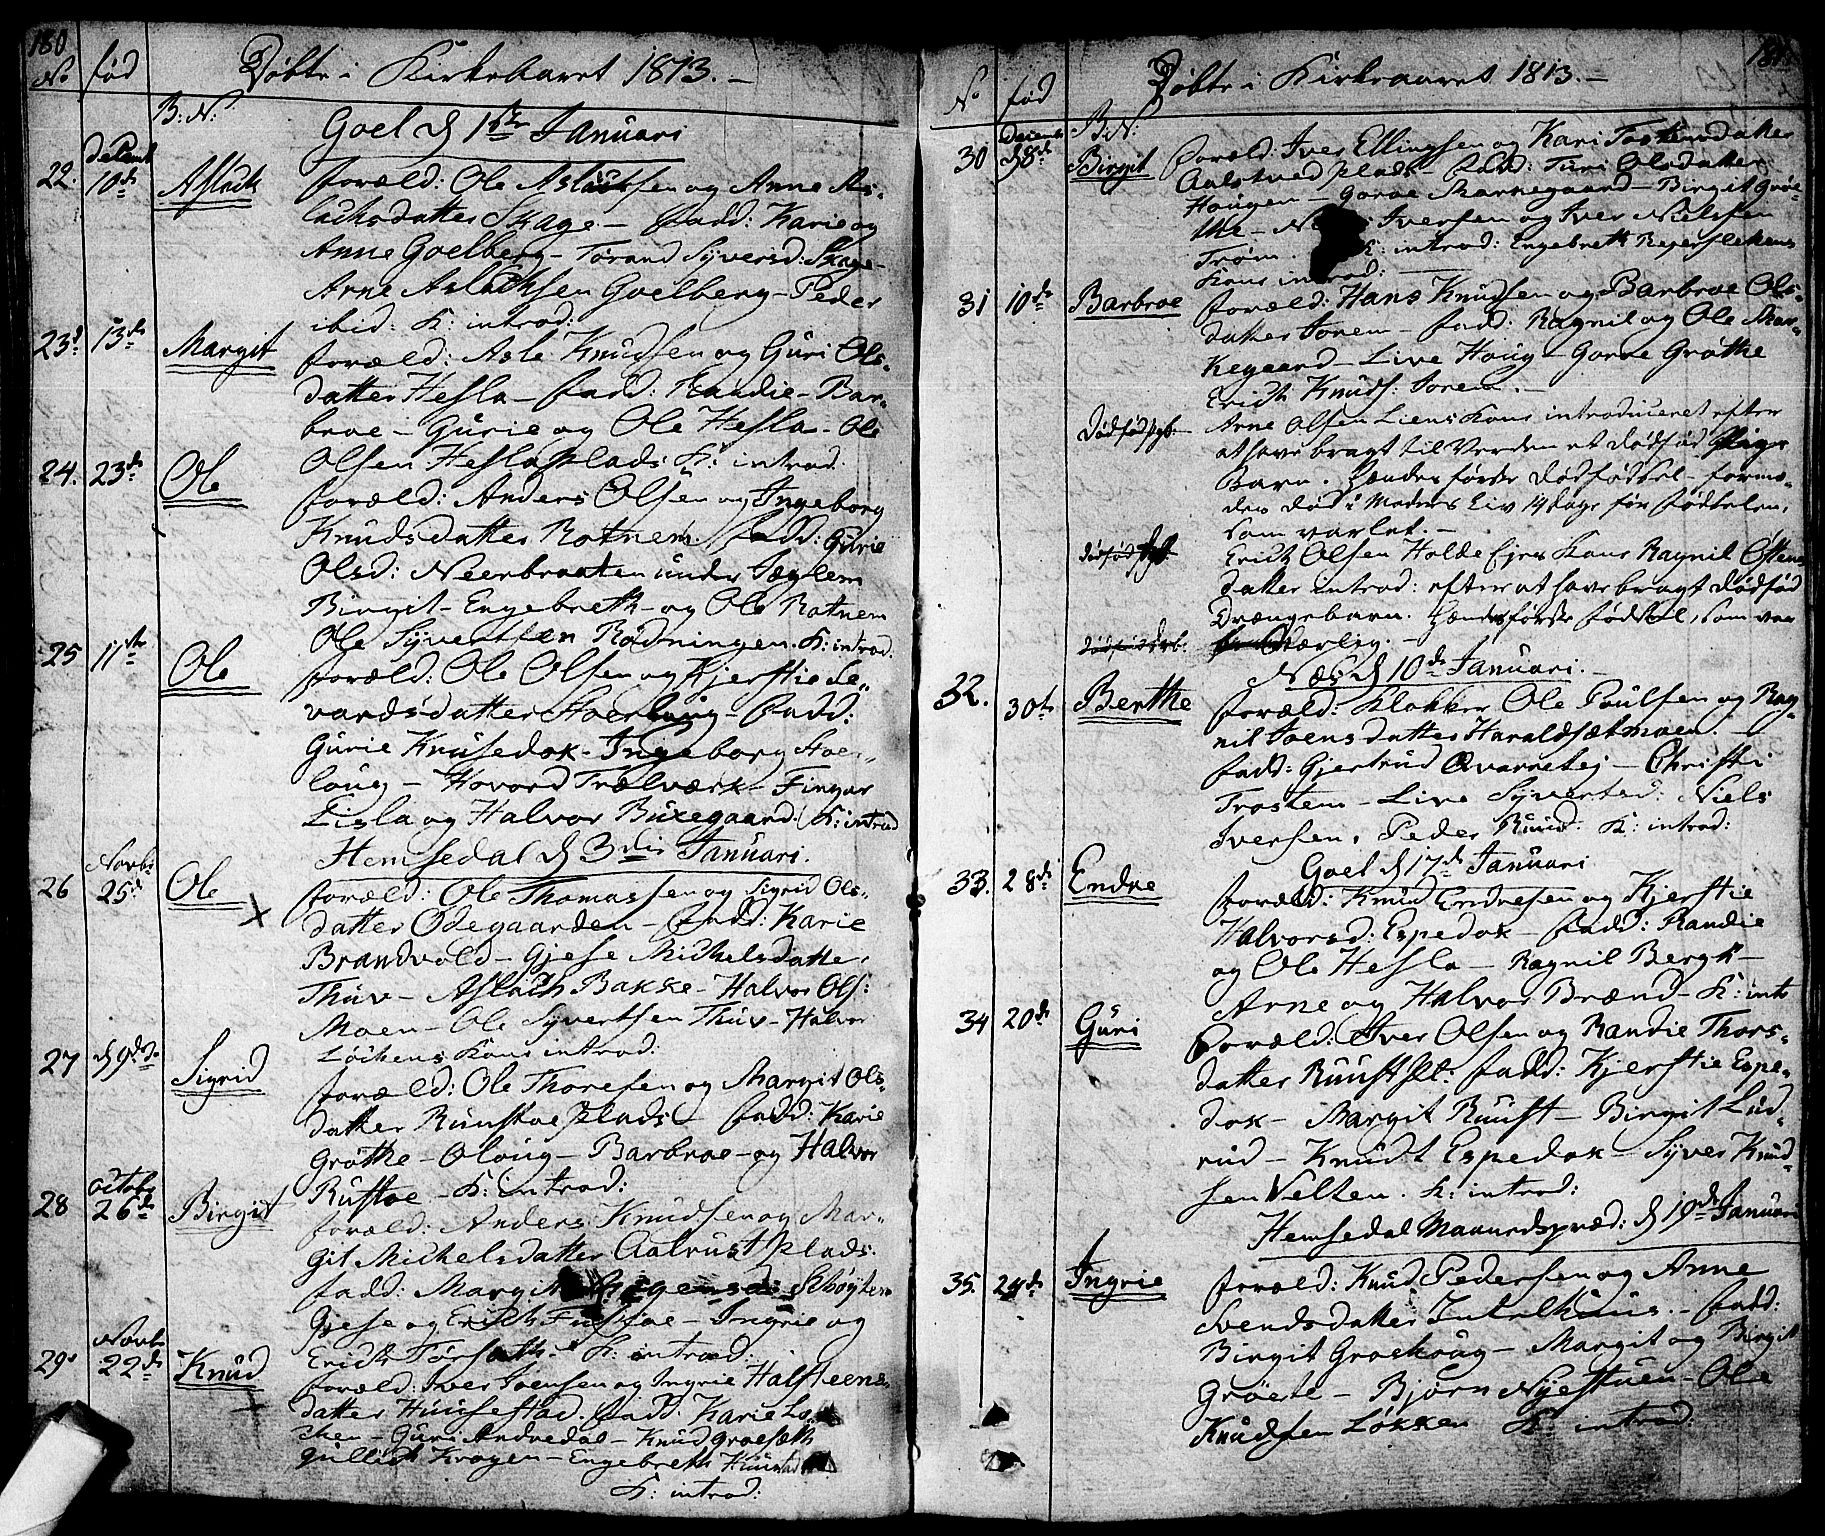 180
No fød Døbte i Kirkeaaret 1813. —
B: N:
Goel d 1ste Januari
22. Decemb 10de Aslack foræld: Ole Aslacksen og Anne As-
lachsdatter Skage — fadd: Karie og
Anne Goelberg — Torand Syversd: Skage —
Arne Aslachsen Goelberg — Peder
ibid: K: introd:
23 13de Margit foræld: Asle Knudsen og Guri Ols-
datter Hesla — fadd: Randie — Bar-
broe — Gurie og Ole Hesla — Ole
Olsen Heslaplads K: introd:
24. 23de Ole foræld: Anders Olsen og Ingeborg
Knudsdatter Rotnem. fadd: Gurie
Olsd: Neerbraaten under
Birgit — Engebreth — og Ole Rotnem
Ole Syvertsen Rødningen. K: introd.
25 11te Ole foræld: Ole Olsen og Kjerstie Se-
vardsdatter — fadd:
Gurie — Ingeborg Stoer-
loug — Hovord Trælværk — Fingar
Lisla og Halvor Buxegaard. K: introd
Hemsedal d 3die Januari.
26 Novb: 25de Ole foræld: Ole Thomassen og Sigrid Ols-
datter Ødegaarden — fadd: Karie
Brandvold — Gjese Michelsdatter
Thuv — Aslach Bakke — Halvor Ols:
Moen — Ole Syvertsen Thuv — Halvor
Løchens Kone introd:
27 d 9de Sigrid foræld: Ole Thoresen og Margit Ols-
datter Ruustoe plads — fadd: Karie
Grøthe — Oloug — Barbroe — og Halvor
Rustoe — K: introd:
28 Octob 26de Birgit foræld: Anders Knudsen og Mar-
git Michelsdatter Aalrust plads.
fadd: Margit
Gjese og Erich — Ingrie og
Erich K: introd:
29 Novb 22de Knud foræld: Iver Joensen og Ingrie Halsteens-
datter Huusestad. fadd: Karie Lø-
chen — Guri Andredal — Knud Groeseth
Gullich Kragen — Engebreth
K: introd:
181
No fød Døbte i Kirkeaaret 1813. —
B: N:
30 Decemb 28de Birgit Foræld: Iver Ellingsen og Kari Torstensdatter
Aalstvedplads — fadd: Turi Olsdatter
Hougen — Goroe Markegaard — Birgit Grø-
the — Iversen og Iver Nielsen
Trøim. K: introd: Engebreth
Kone introd:
31 10de Barbroe foræld: Hans Knudsen og Barbroe Ols-
datter Torem — fadd: Ragnil og Ole Mar-
kegaard — Live Houg — Goroe Grøthe
Erich Knuds: Torem. —
Arne Olsen Liens Kone introduceret efter
at have bragt til Verden et dødfød Pige
Barn. Hendes første Dødfødsel — forme-
den død i Modrens Liv 14 dage før fødselen,
som var let. —
Erich Olsen Holde Ejes Kone Ragnil Østens-
datter introd: efter at have bragt dødfød
Drængebarn. Hendes første fødsel, som var
Næs d 10de Januari. —
32. 30te Berthe foræld: Klokker Ole Paulsen og Rag-
nil Joensdatter Haraldsetmoen. —
fadd: Gjertrud — Christi
Trostem — Live Syversd: Niels
Iversen, Peder Ruud. K: introd:
Goel d 17de Januari
33. 28de Endre foræld: Knud Endresen og Kjerstie
Halvorsd: Espedok — fadd: Randie
og Ole Hesla — Ragnil Bergh —
Arne og Halvor Brænd — K: intr
34 20de Guri Foræld: Iver Olsen og Randie Thors-
datter Ruust fadd: Kjerstie Espe-
dok — Margit Ruust — Birgit Lud-
rud — Knudt Espedok — Syver Knud-
sen Velten. K: introd:
Hemsedal Maanedspræd: d 19de Januari
35. 24de Ingrie foræld: Knud Pedersen og Anne
Svendsdatter — fadd:
Birgit — Margit og Birgit
Grøete — Bjørn Nyestuen — Ole
Knudsen Løkken K: introd.